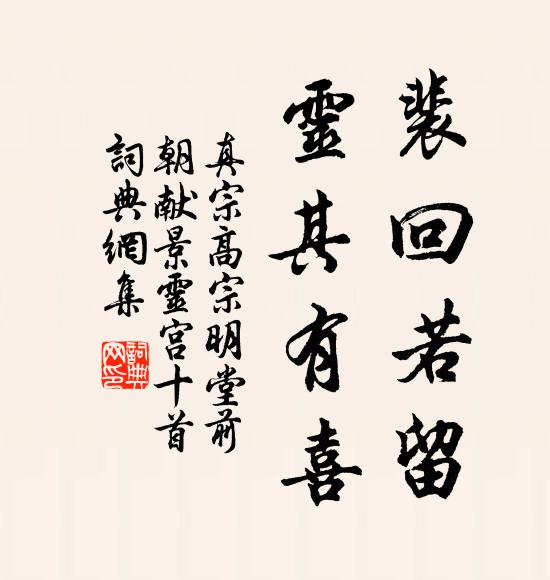 裴回若留
靈其有喜
真宗高宗明堂前
朝献景靈宫十首
詞典網集
詞典
网印